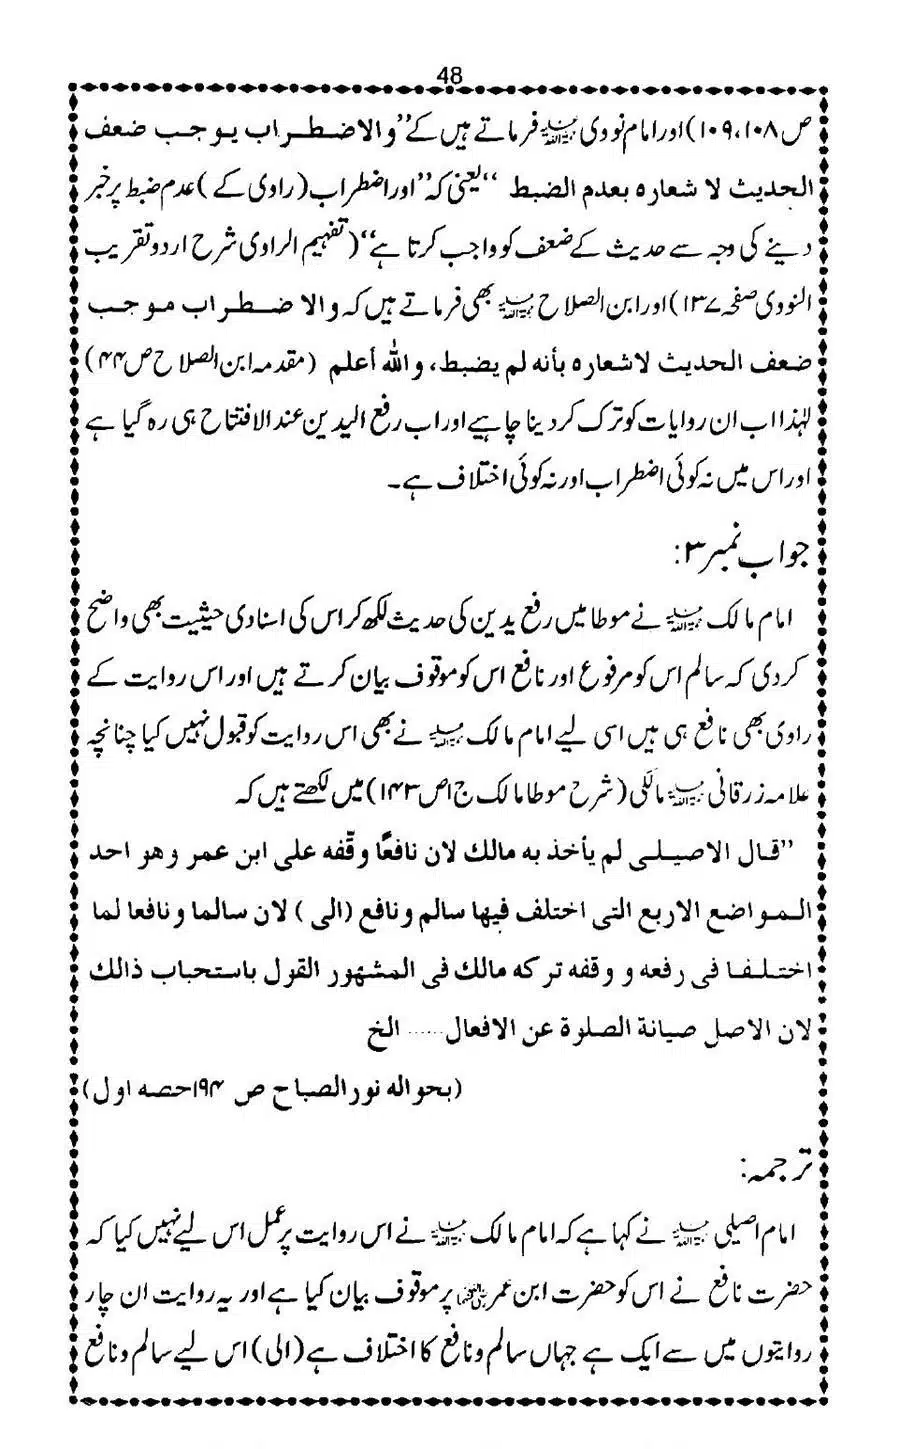 48
ص ۱۰۸،۱۰۹) اور امام نووی رحمۃ اللہ علیہ فرماتے ہیں کے ’’والاضطراب یوجب ضعف
الحدیث لا شعارہ بعدم الضبط ‘‘ یعنی کہ ’’اور اضطراب (راوی کے) عدم ضبط پر خبر
دینے کی وجہ سے حدیث کے ضعف کو واجب کرتا ہے‘‘ (تفہیم الراوی شرح اردو تقریب
النووی صفحہ ۱۳۷) اور ابن الصلاح رحمۃ اللہ علیہ بھی فرماتے ہیں کہ والاضطراب موجب
ضعف الحدیث لاشعارہ بأنه لم یضبط، واللہ أعلم (مقدمہ ابن الصلاح ص ۴۴)
لہٰذا اب ان روایات کو ترک کر دینا چاہیے اور اب رفع الیدین عند الافتتاح ہی رہ گیا ہے
اور اس میں نہ کوئی اضطراب اور نہ کوئی اختلاف ہے۔
جواب نمبر ۳:
امام مالک رحمۃ اللہ علیہ نے موطا میں رفع یدین کی حدیث لکھ کر اس کی اسنادی حیثیت بھی واضح
کردی کہ سالم اس کو مرفوع اور نافع اس کو موقوف بیان کرتے ہیں اور اس روایت کے
راوی بھی نافع ہی ہیں اسی لیے امام مالک رحمۃ اللہ علیہ نے بھی اس روایت کو قبول نہیں کیا چنانچہ
علامہ زرقانی رحمۃ اللہ علیہ مالکی (شرح موطا مالک ج۱ ص ۱۴۳) میں لکھتے ہیں کہ
’’قال الاصیلی لم یأخذ به مالك لان نافعًا وقّفه علی ابن عمر وهو احد
المواضع الاربع التی اختلف فیها سالم ونافع (الی) لان سالما ونافعا لما
اختلفا فی رفعه و وقفه ترکه مالك فی المشهور القول باستحباب ذالك
لان الاصل صیانة الصلوة عن الافعال...... الخ
(بحواله نور الصباح ص ۱۹۴ حصه اول)
ترجمہ:
امام اصیلی رحمۃ اللہ علیہ نے کہا ہے کہ امام مالک رحمۃ اللہ علیہ نے اس روایت پر عمل اس لیے نہیں کیا کہ
حضرت نافع نے اس کو حضرت ابن عمر رضی اللہ عنہما پر موقوف بیان کیا ہے اور یہ روایت ان چار
روایتوں میں سے ایک ہے جہاں سالم ونافع کا اختلاف ہے (الی) اس لیے سالم ونافع